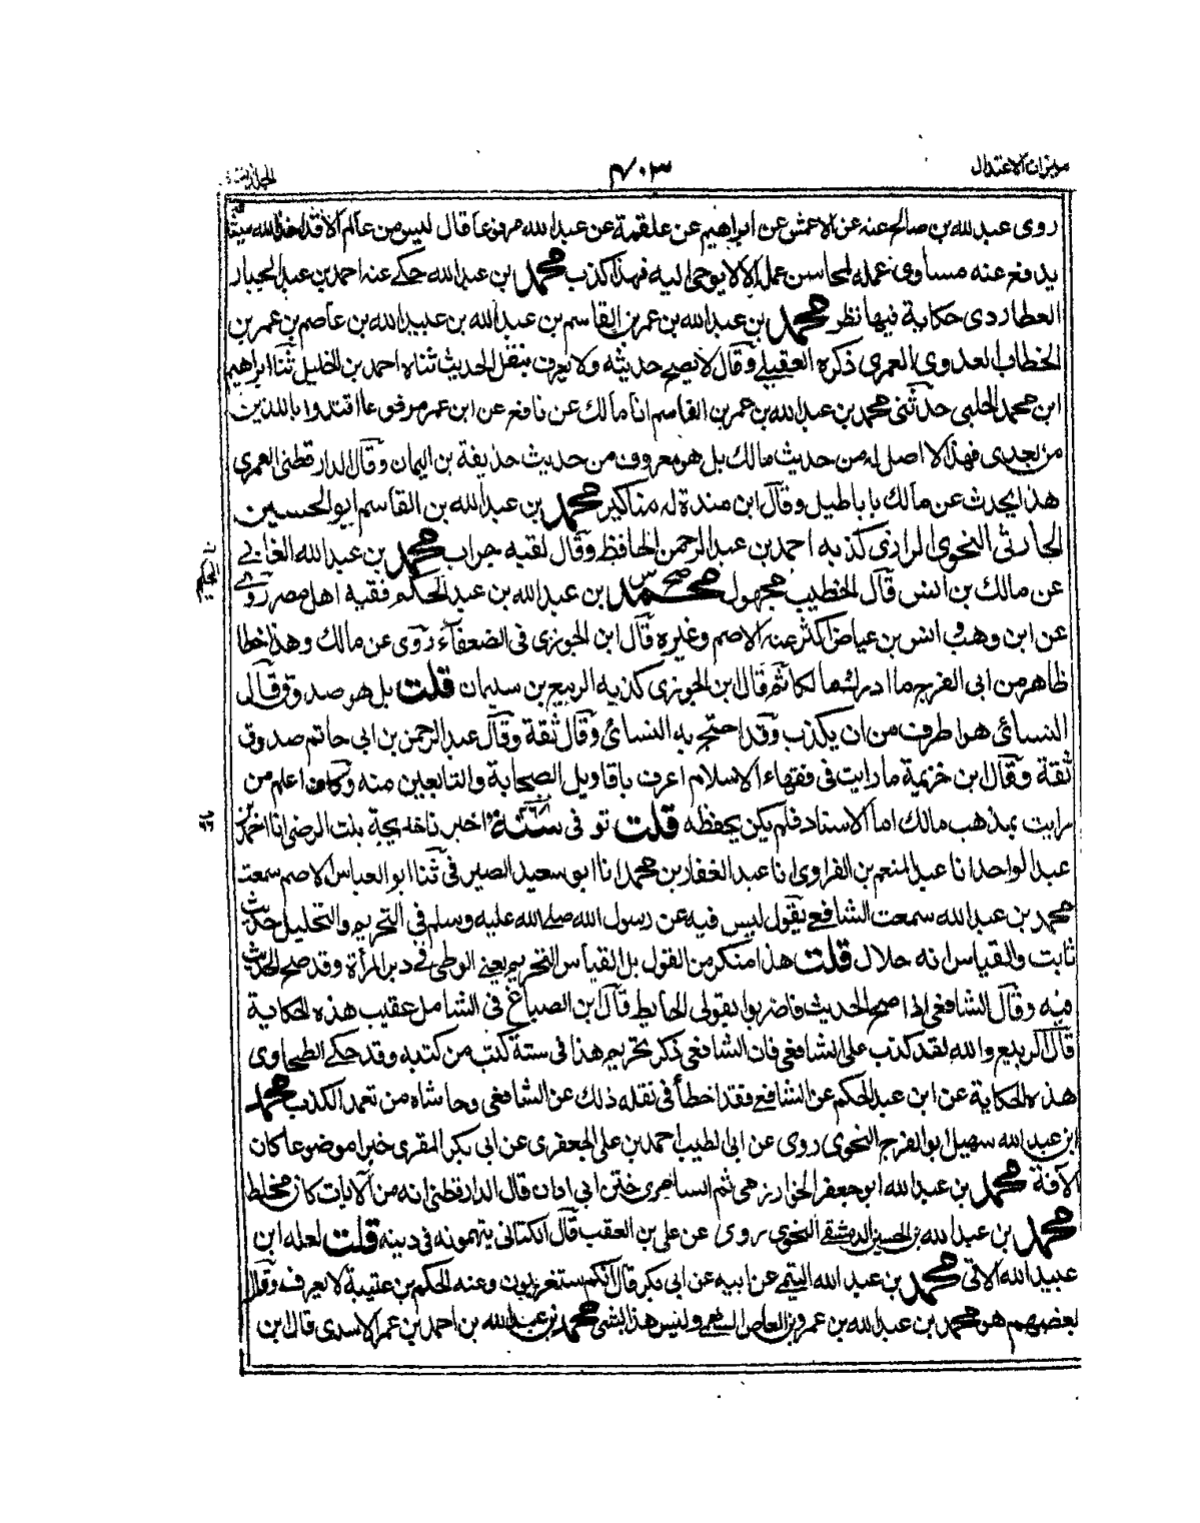 ميزان الاعتدال
٧٠٣
روى عبد الله بن صالح عنه عن الاعمش عن ابراهيم عن علقمة عن عبد الله مرفوعا قال ليس من عالم الا وقد اخذ الله ميثاقه
يدفع عنه مساوى عمله لمحاسن عمله الا انه لا يوحى اليه فهذا كذب محمد بن عبد الله حكى عنه احمد بن عبد الجبار
العطاردى حكاية فيها نظر محمد بن عبد الله بن عمر بن القاسم بن عبد الله بن عبيد الله بن عاصم بن عمر بن
الخطاب العدوى العمرى ذكره العقيلى وقال لا يصح حديثه ولا يعرف بنقل الحديث ثناه احمد بن الخليل ثنا ابراهيم
ابن محمد الحلبى حدثنى محمد بن عبد الله بن عمر بن القاسم انا مالك عن نافع عن ابن عمر مرفوعا اقتدوا باللذين
من بعدى فهذا لا اصل له من حديث مالك بل هو معروف من حديث حذيفة بن اليمان وقال الدارقطنى العمرى
هذا يحدث عن مالك باباطيل وقال ابن مندة له مناكير محمد بن عبد الله بن القاسم ابو الحسين
الحارثى النحوى الرازى كذبه احمد بن عبد الرحمن الحافظ وقال لقبه جراب محمد بن عبد الله الغابى
عن مالك بن انس قال الخطيب مجهول محمد صح س بن عبد الله بن عبد الحكم فقيه اهل مصر روى
عن ابن وهب وانس بن عياض اكثر عنه الاصم وغيره قال ابن الجوزى فى الضعفاء روى عن مالك وهذا خطا
ظاهر من ابى الفرج ما ادرك مالكا ثم قال ابن الجوزى كذبه الربيع بن سليمان قلت بل هو صدوق وقال
النسائى هو اظرف من ان يكذب وقد احتج به النسائى وقال ثقة وقال عبد الرحمن بن ابى حاتم صدوق
ثقة وقال ابن خزيمة ما رايت فى فقهاء الاسلام اعرف باقاويل الصحابة والتابعين منه وكان اعلم من
رايت بمذهب مالك اما الاسناد فلم يكن يحفظه قلت توفى سنة ٢٦٨ اخبرتنا خديجة بنت الرضى انا احمد بن
عبد الواحد انا عبد المنعم بن الفراوى انا عبد الغفار بن محمد انا ابو سعيد الصيرفى ثنا ابو العباس الاصم سمعت
محمد بن عبد الله سمعت الشافعى يقول ليس فيه عن رسول الله صلى الله عليه وسلم فى التحريم والتحليل حديث
ثابت والقياس انه حلال قلت هذا منكر من القول بل القياس التحريم يعنى الوطى فى دبر المرأة وقد صح الحديث
فيه وقال الشافعى اذا صح الحديث فاضربوا بقولى الحايط قال ابن الصباغ فى الشامل عقيب هذه الحكاية
قال الربيع والله لقد كذب على الشافعى فان الشافعى ذكر تحريم هذا فى ستة كتب من كتبه وقد حكى الطحاوى
هذه الحكاية عن ابن عبد الحكم عن الشافعى فقد اخطأ فى نقله ذلك عن الشافعى وحاشاه من تعمد الكذب محمد
ابن عبد الله سهيل ابو الفرج النحوى روى عن ابى الطيب احمد بن على الجعفرى عن ابى بكر المقرى خبرا موضوعا كان
الآفة محمد بن عبد الله ابو جعفر الخوارزمى ثم السامرى ختن ابى اذان قال الدارقطنى انه من الآيات كان مخلط
محمد بن عبد الله بن الحسين الدمشقى النحوى روى عن على بن العقب قال الكتانى يتهمونه فى دينه قلت لعله ابن
عبيد الله الاتى محمد بن عبد الله التيمى عن ابيه عن ابى بكر قال انكم ستغربلون وعنه الحكم بن عتيبة لا يعرف وقال
بعضهم هو محمد بن عبد الله بن عمرو بن العاص السهمى وليس هذا بشى محمد بن عبد الله بن احمد بن عمر الاسدى قال ابن